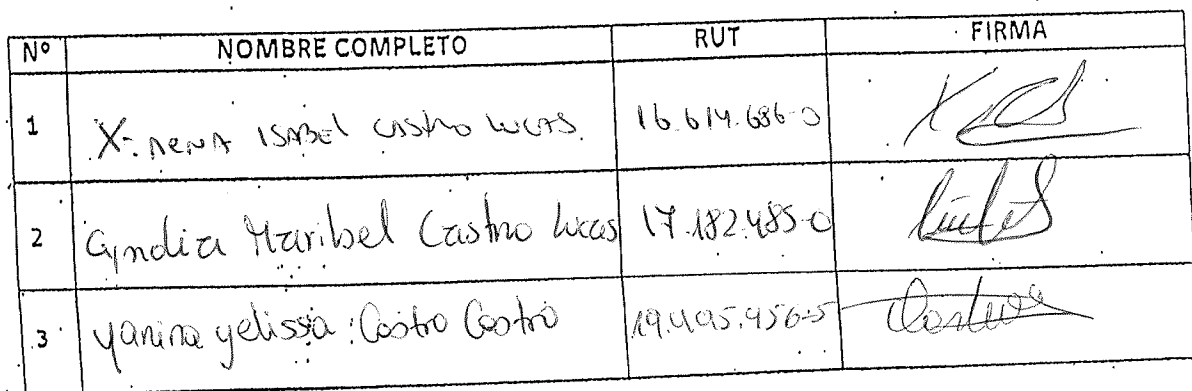 Nº NOMBRE COMPLETO RUT FIRMA
1 Ximena ISABEL CASTRO LUCAS 16.614.686-0
2 Cyndia Maribel Castro Lucas 17.182.485-0
3 yanina yelissa Castro Castro 19.495.956-5